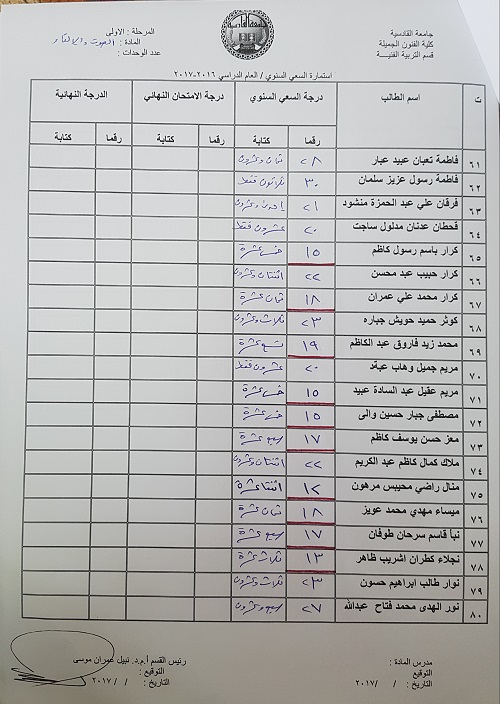 جامعة القادسية
كلية الفنون الجميلة
قسم التربية الفنية
المرحلة : الاولى
المادة : الصوت والالقاء
عدد الوحدات :
استمارة السعي السنوي / العام الدراسي ٢٠١٦-٢٠١٧
ت اسم الطالب درجة السعي السنوي درجة الامتحان النهائي الدرجة النهائية
رقما كتابة رقما كتابة رقما كتابة
٦١ فاطمة تعبان عبيد عبار ٢٨ ثمان وعشرون
٦٢ فاطمة رسول عزيز سلمان ٣٠ ثلاثون فقط
٦٣ فرقان علي عبد الحمزة منشود ٢١ احدى وعشرون
٦٤ قحطان عدنان مدلول ساجت ٢٠ عشرون فقط
٦٥ كرار باسم رسول كاظم ١٥ خمس عشرة
٦٦ كرار حبيب عبد محسن ٢٢ اثنتان وعشرون
٦٧ كرار محمد علي عمران ١٨ ثمان عشرة
٦٨ كوثر حميد حويش جباره ٢٣ ثلاث وعشرون
٦٩ محمد زيد فاروق عبد الكاظم ١٩ تسع عشرة
٧٠ مريم جميل وهاب عبد ٢٠ عشرون فقط
٧١ مريم عقيل عبد السادة عبيد ١٥ خمس عشرة
٧٢ مصطفى جبار حسين والي ١٥ خمس عشرة
٧٣ معز حسن يوسف كاظم ١٧ سبع عشرة
٧٤ ملاك كمال كاظم عبد الكريم ٢٢ اثنتان وعشرون
٧٥ منال راضي محيبس مرهون ١٢ اثنتا عشرة
٧٦ ميساء مهدي محمد عويز ١٨ ثمان عشرة
٧٧ نبأ قاسم سرحان طوفان ١٧ سبع عشرة
٧٨ نجلاء كطران اشريب ظاهر ١٣ ثلاث عشرة
٧٩ نوار طالب ابراهيم حسون ٢٣ ثلاث وعشرون
٨٠ نور الهدى محمد فتاح عبدالله ٢٧ سبع وعشرون
مدرس المادة :
التوقيع
التاريخ : / / ٢٠١٧
رئيس القسم أ.م.د. نبيل عمران موسى
التوقيع :
التاريخ : / / ٢٠١٧